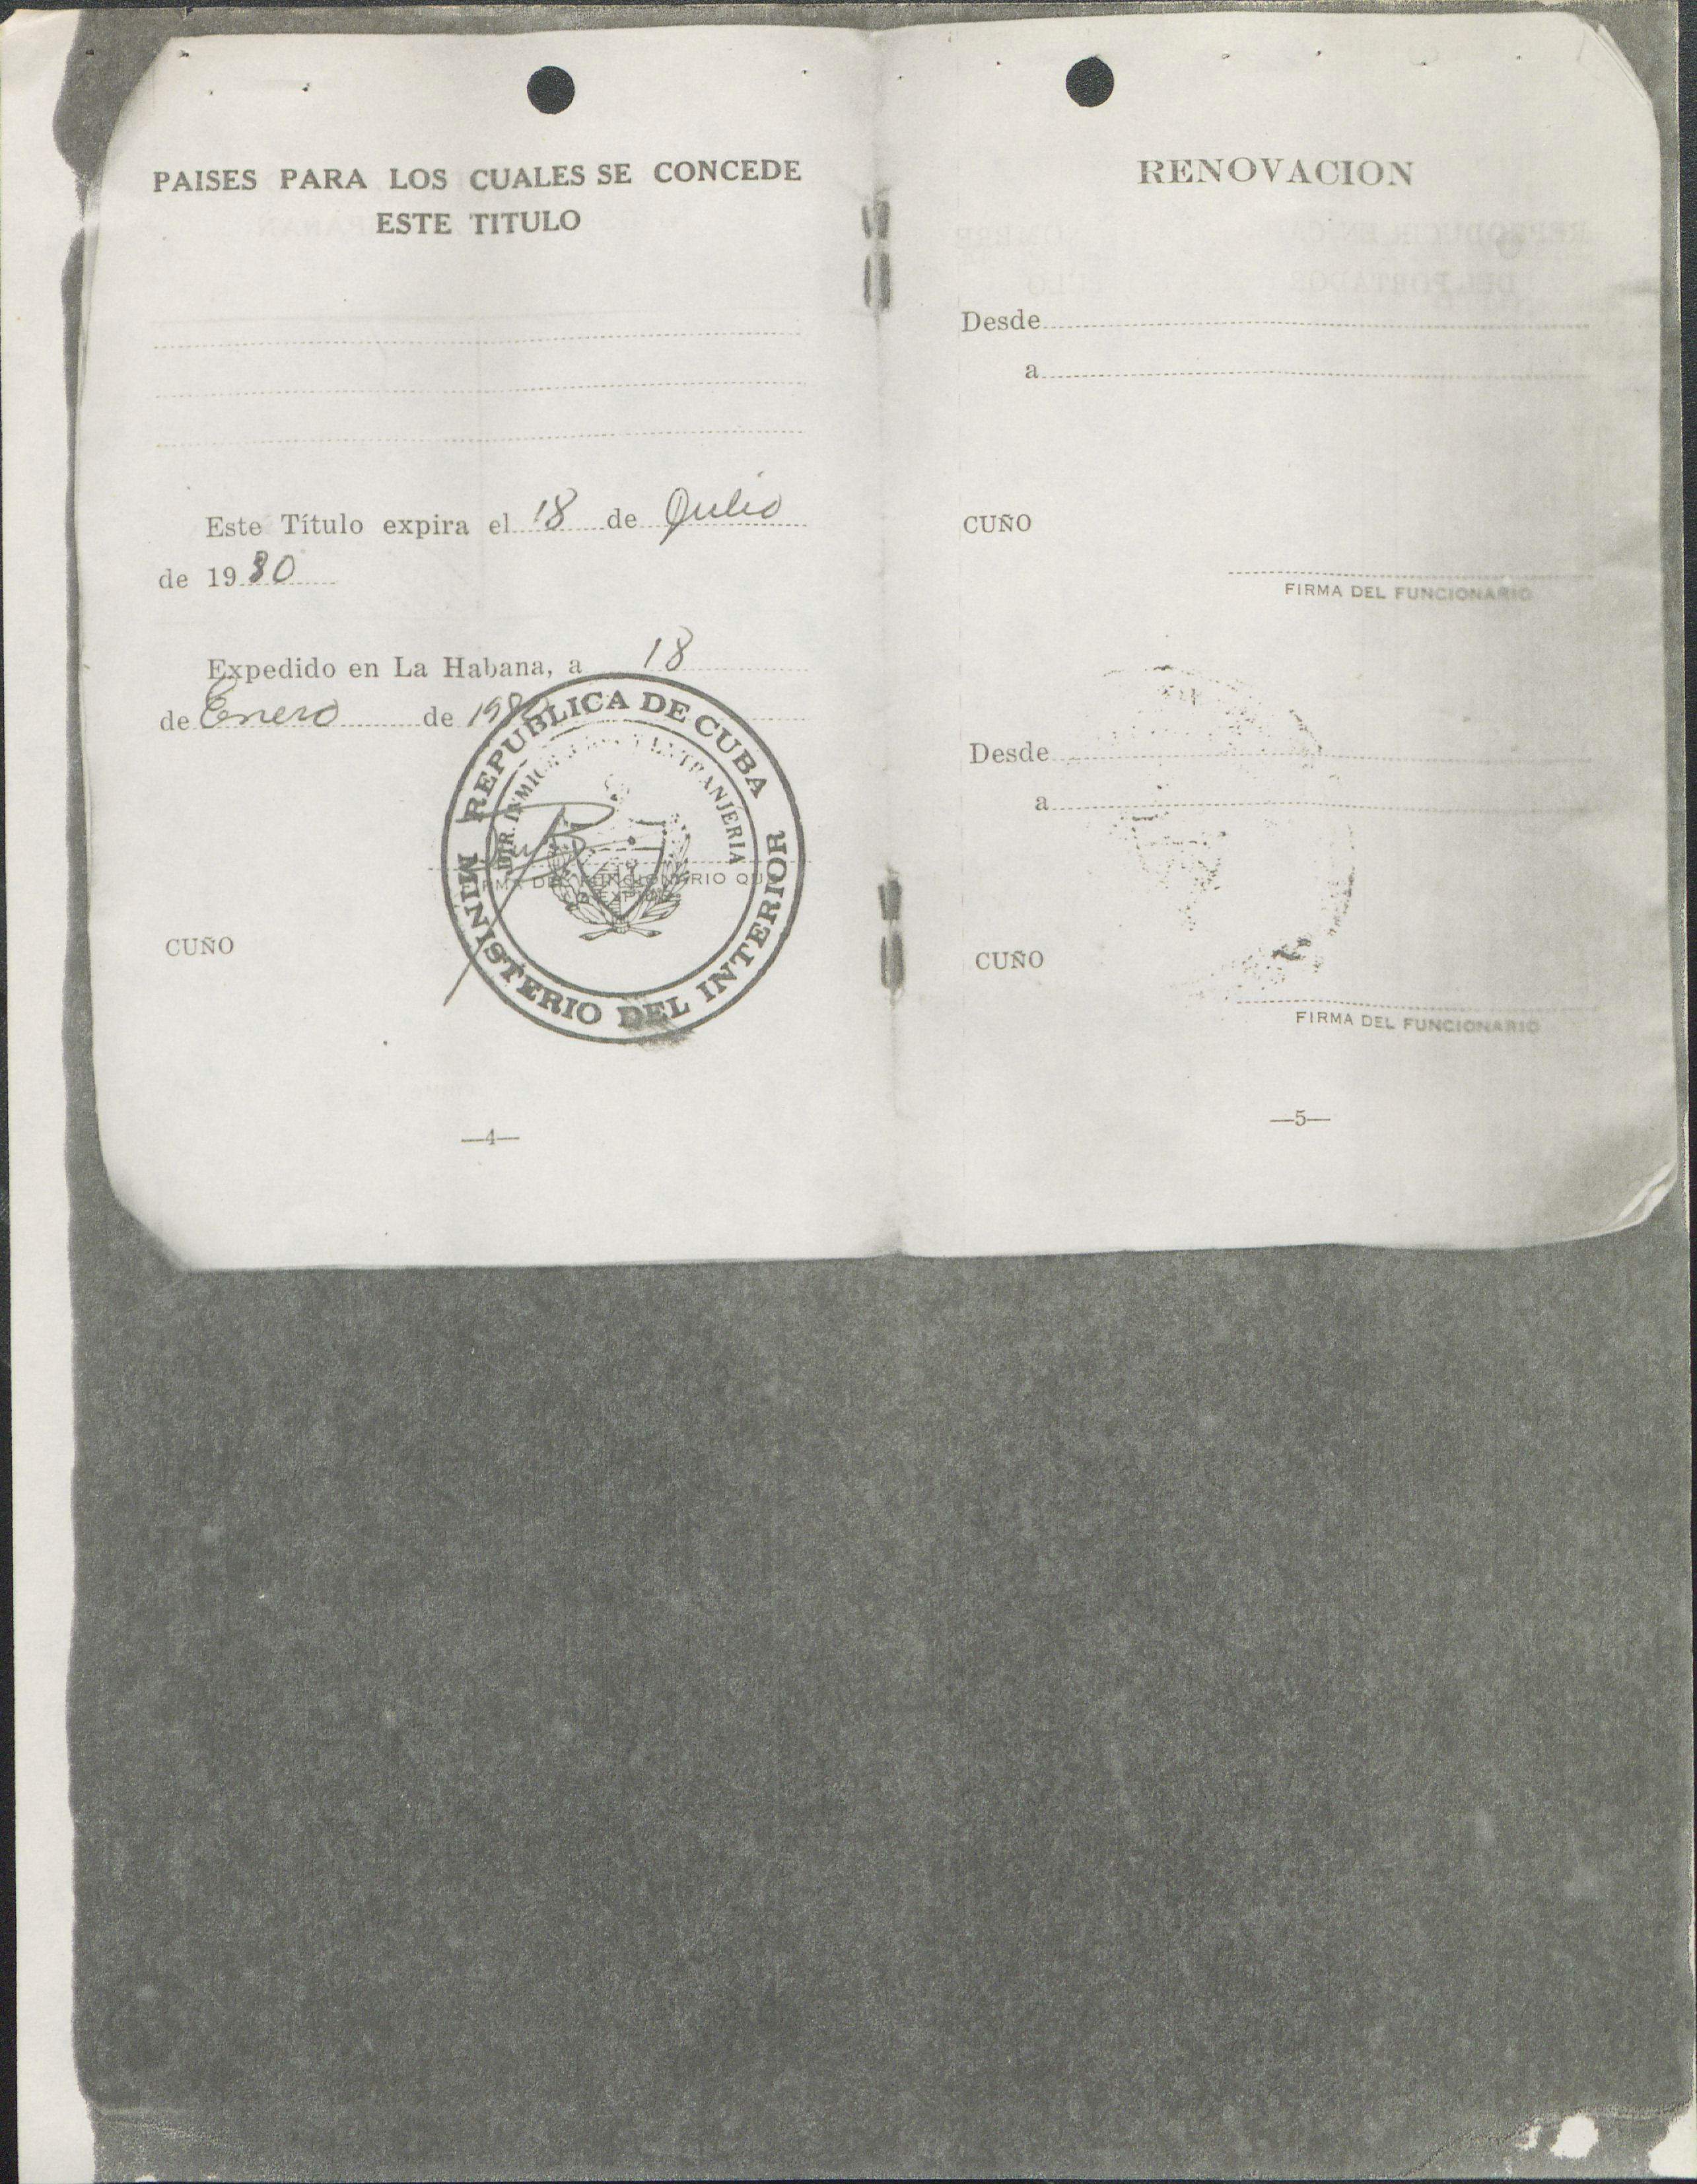 PAISES PARA LOS CUALES SE CONCEDE
ESTE TITULO
Este Título expira el 18 de Julio
de 1980
Expedido en La Habana, a 18
de Enero de 198
REPUBLICA DE CUBA
DIR. INMIG Y EXTRANJERIA
MINISTERIO DEL INTERIOR
FIRMA DEL FUNCIONARIO QUE
EXPIDE
CUÑO
—4—
RENOVACION
Desde
a
CUÑO
FIRMA DEL FUNCIONARIO
Desde
a
CUÑO
FIRMA DEL FUNCIONARIO
—5—